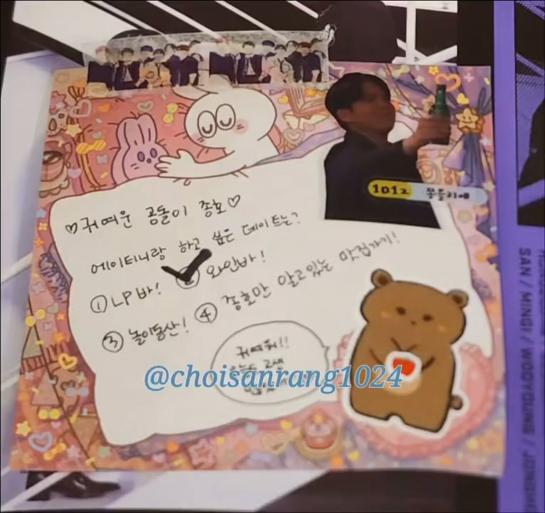 ♡귀여운 곰돌이 종호♡
에이티니랑 하고 싶은 데이트는?
① LP바! ② 와인바!
③ 놀이동산! ④ 종호만 알고있는 맛집가기!
귀여워!!
1012
@choisanrang1024
SAN / MINGI / WOOYOUNG / JONGHO